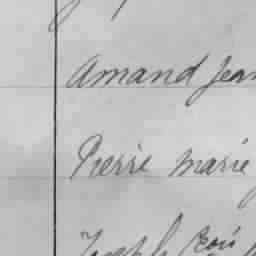 Amand Jean
Pierre marie
Joseph